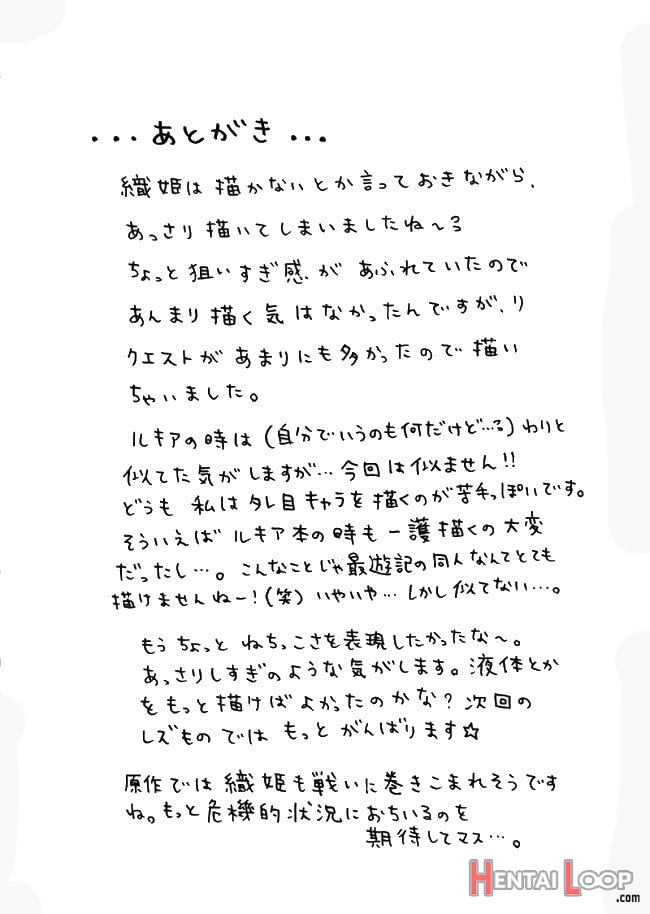 ...あとがき...
織姫は描かないとか言っておきながら、
あっさり描いてしまいましたね〜る
ちょっと狙いすぎ感があふれていたので
あんまり描く気はなかったんですが、リ
クエストがあまりにも多かったので描い
ちゃいました。
ルキアの時は(自分でいうのも何だけど…る)わりと
似てた気がしますが…今回は似ません!!
どうも私はタレ目キャラを描くのが苦手っぽいです。
そういえばルキア本の時も一護描くの大変
だったし…。こんなことじゃ最遊記の同人なんてとても
描けませんねー!(笑)いやいや…しかし似てない…。
もうちょっとねちっこさを表現したかったな〜。
あっさりしすぎのような気がします。液体とか
をもっと描けばよかったのかな?次回の
レズものではもっとがんばります☆
原作では織姫も戦いに巻きこまれそうです
ね。もっと危機的状況におちいるのを
期待してマス…。
HENTAI LOOP
.com